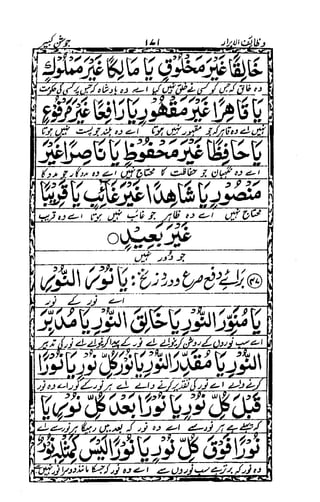 وظائف الابرار ۱۸۱ جوشن کبیر
خَالِقًا غَيْرَ مَخْلُوقٍ يَا مَالِكًا غَيْرَ مَمْلُوكٍ
وہ خالق کہ جس کو کسی نے خلق نہیں کیا اے وہ بادشاہ کہ جس پر کسی کی حکومت
يَا قَاهِرًا غَيْرَ مَقْهُورٍ يَا رَافِعًا غَيْرَ مَرْفُوعٍ
نہیں اے وہ قاہر کہ جو مقہور نہیں ہوتا اے وہ بلند جو پست نہیں ہوتا
يَا حَافِظًا غَيْرَ مَحْفُوظٍ يَا نَاصِرًا غَيْرَ
اے وہ نگہبان جو حفاظت کا محتاج نہیں ہے اے وہ مددگار جو مدد کا
مَنْصُورٍ يَا شَاهِدًا غَيْرَ غَائِبٍ يَا قَرِيبًا
محتاج نہیں اے وہ ظاہر جو غائب نہیں ہوتا اے وہ قریب
غَيْرَ بَعِيدٍ
جو دور نہیں
(۴۷) برائے دفع صرع و دوزخ : يَا نُورَ النُّورِ
اے نور کے نور
يَا مُنَوِّرَ النُّورِ يَا خَالِقَ النُّورِ يَا مُدَبِّرَ
اے سب نوروں کے روشن کرنیوالے اے نور کے پیدا کرنیوالے اے نور کی تدبیر
النُّورِ يَا مُقَدِّرَ النُّورِ يَا نُورَ كُلِّ نُورٍ يَا نُورًا
کرنیوالے اے نور کی تقدیر کرنے والے اے ہر نور کے نور اے وہ نور
قَبْلَ كُلِّ نُورٍ يَا نُورًا بَعْدَ كُلِّ نُورٍ يَا
کہ جو پہلے ہے ہر نور سے اے وہ نور کہ جو بعد میں رہیگا ہر نور سے اے
نُورًا فَوْقَ كُلِّ نُورٍ يَا نُورًا لَيْسَ كَمِثْلِهِ نُورٌ
وہ نور کہ برتر ہے سب نوروں سے اے وہ نور کہ جسکا مانند دوسرا نور نہیں